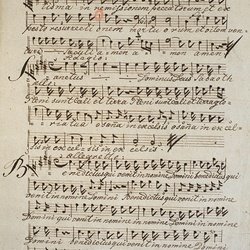 tisma in remissionem peccatorum et ex
pecto resurrectionem mortuorum et vitam ven
turi saeculi a men a men amen
Adagio
Sanctus Dominus Deus Sabaoth
Pleni sunt caeli et terra Pleni sunt caeli et terra glo
ria tua osana in excelsis osana in excel
sis in excelsis in excelsis
Allegretto
Benedictus qui venit in nomine Domini Benedictus qui
venit in nomine Domini Benedictus qui venit in nomine
Domini qui venit in nomine Domini in nomine Domini
Domini Benedictus qui venit in nomine Domini